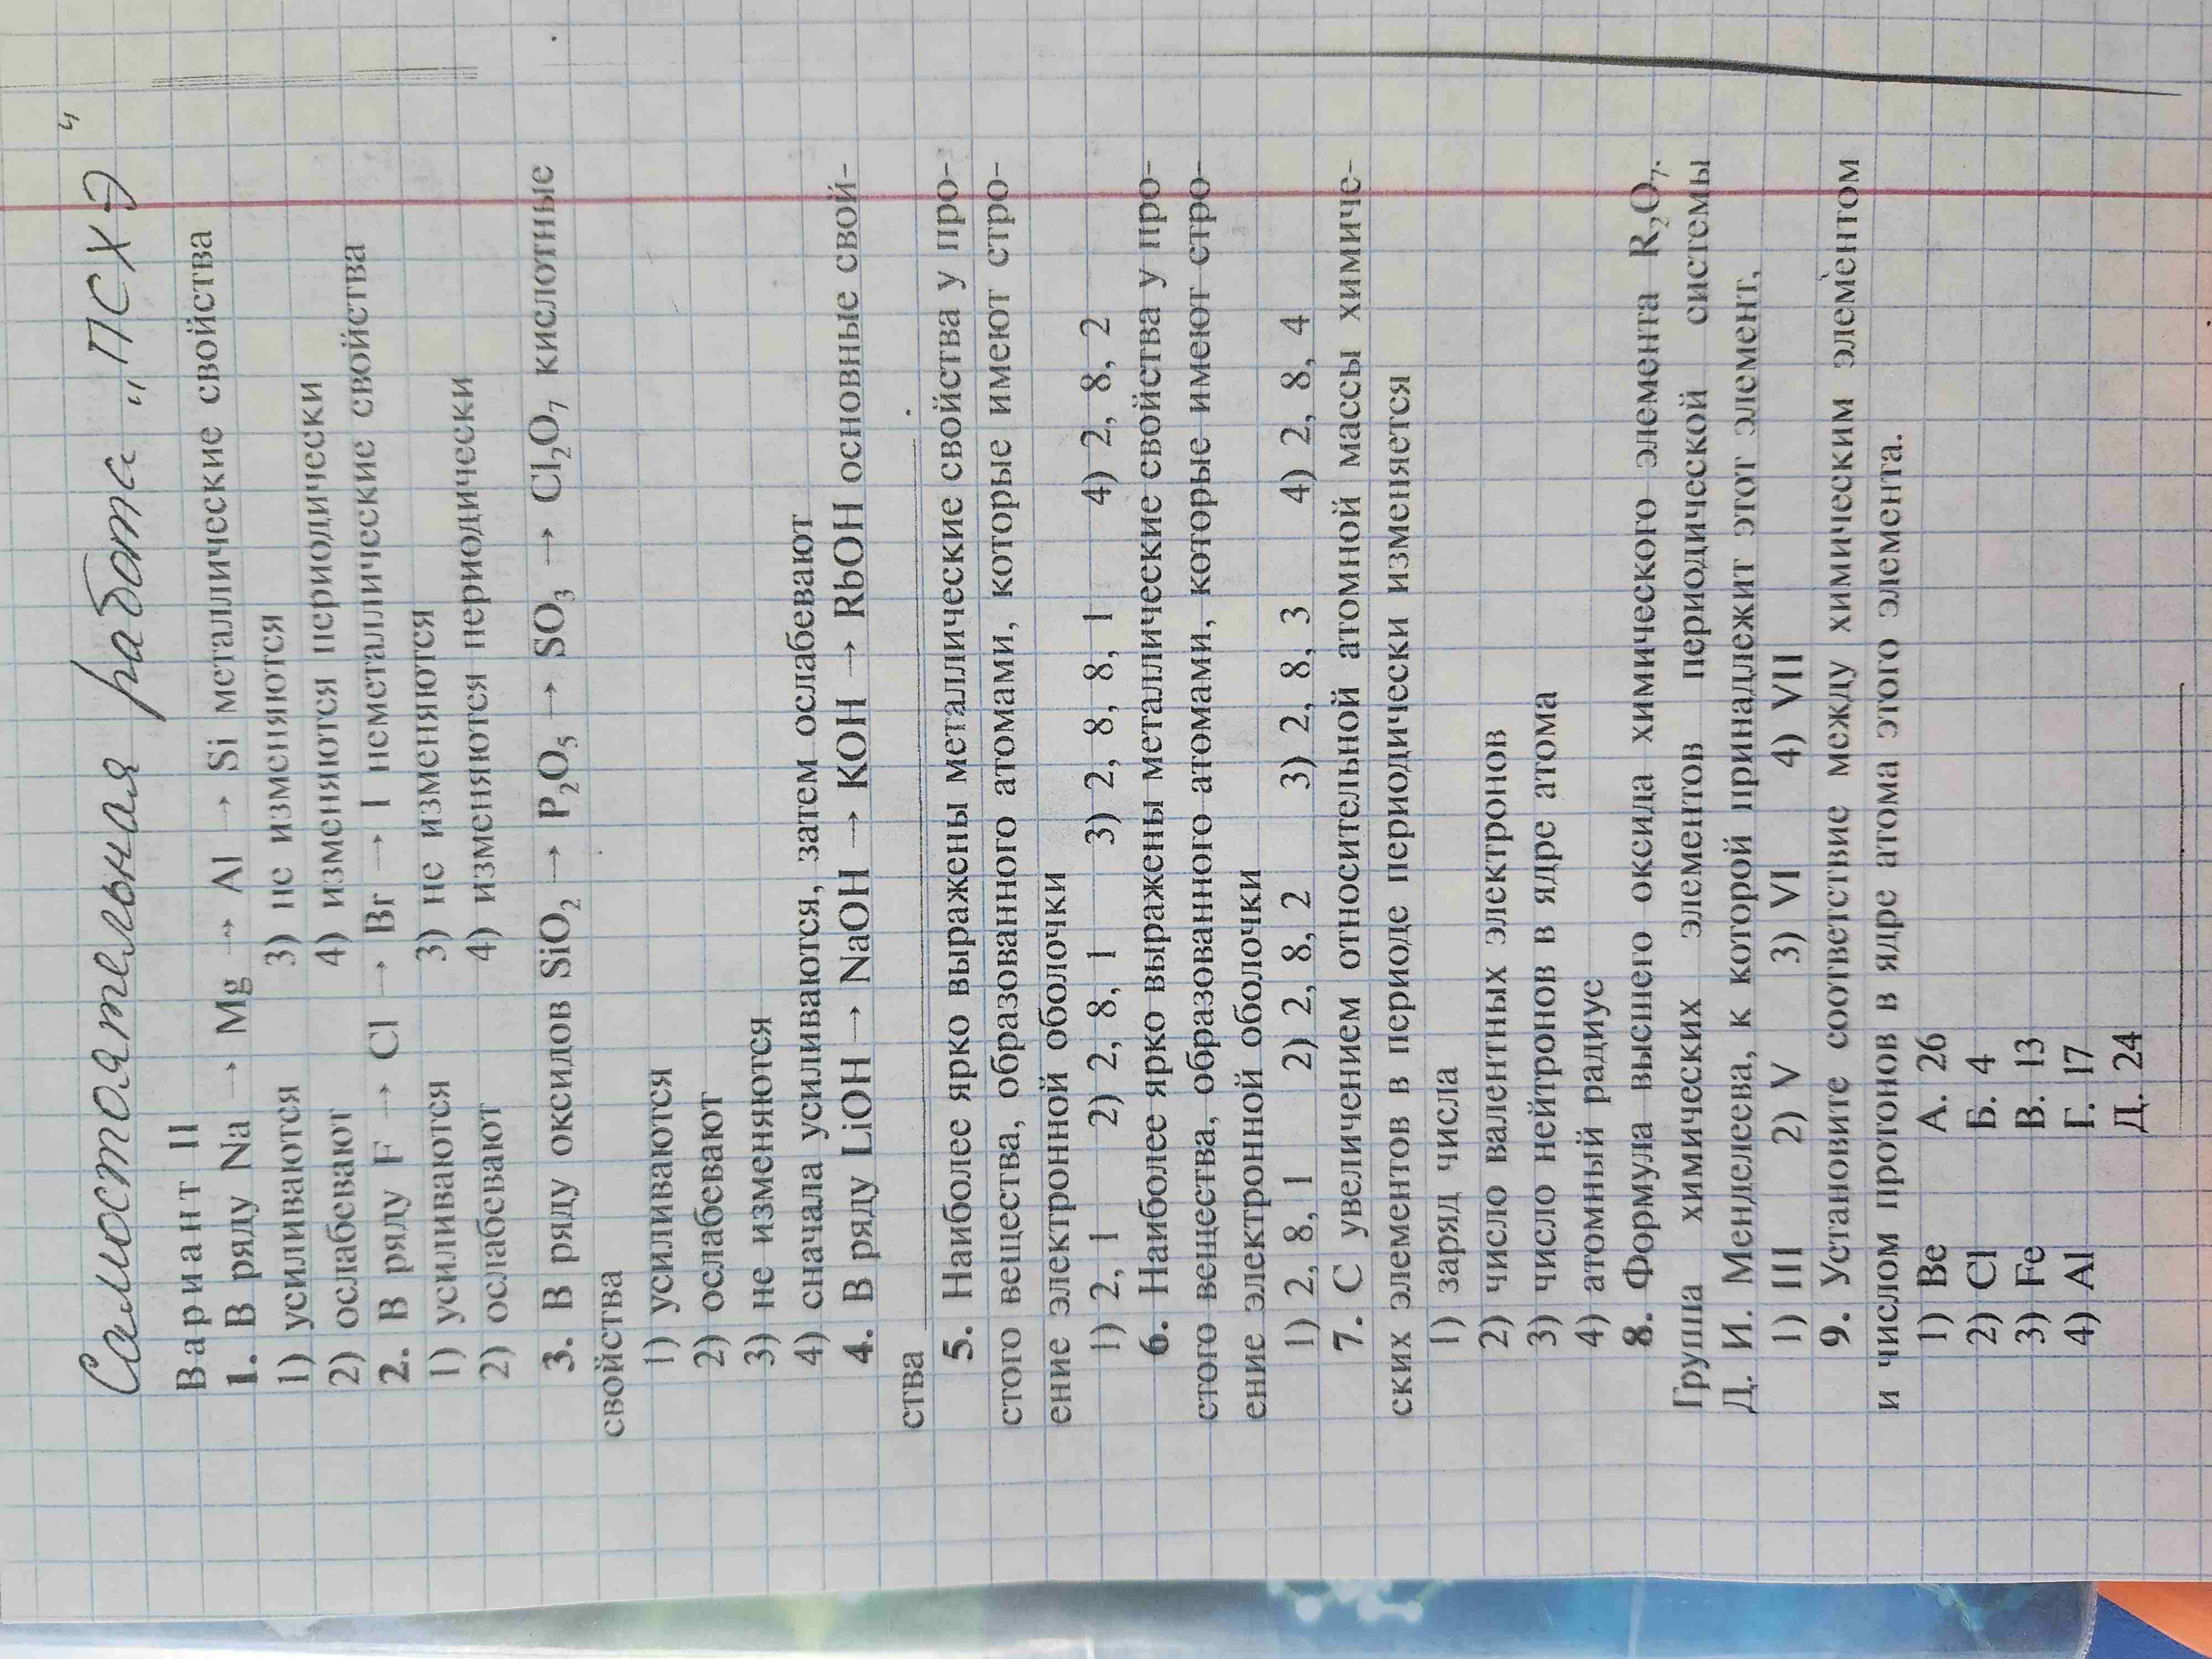 Самостоятельная работа „ПСХЭ"
Вариант II
1. В ряду Na → Mg → Al → Si металлические свойства
1) усиливаются 3) не изменяются
2) ослабевают 4) изменяются периодически
2. В ряду F → Cl → Br → I неметаллические свойства
1) усиливаются 3) не изменяются
2) ослабевают 4) изменяются периодически
3. В ряду оксидов SiO₂ → P₂O₅ → SO₃ → Cl₂O₇ кислотные
свойства
1) усиливаются
2) ослабевают
3) не изменяются
4) сначала усиливаются, затем ослабевают
4. В ряду LiOH → NaOH → KOH → RbOH основные свой-
ства
5. Наиболее ярко выражены металлические свойства у про-
стого вещества, образованного атомами, которые имеют стро-
ение электронной оболочки
1) 2, 1 2) 2, 8, 1 3) 2, 8, 8, 1 4) 2, 8, 2
6. Наиболее ярко выражены металлические свойства у про-
стого вещества, образованного атомами, которые имеют стро-
ение электронной оболочки
1) 2, 8, 1 2) 2, 8, 2 3) 2, 8, 3 4) 2, 8, 4
7. С увеличением относительной атомной массы химиче-
ских элементов в периоде периодически изменяется
1) заряд числа
2) число валентных электронов
3) число нейтронов в ядре атома
4) атомный радиус
8. Формула высшего оксида химического элемента R₂O₇.
Группа химических элементов периодической системы
Д. И. Менделеева, к которой принадлежит этот элемент,
1) III 2) V 3) VI 4) VII
9. Установите соответствие между химическим элементом
и числом протонов в ядре атома этого элемента.
1) Be А. 26
2) Cl Б. 4
3) Fe В. 13
4) Al Г. 17
Д. 24